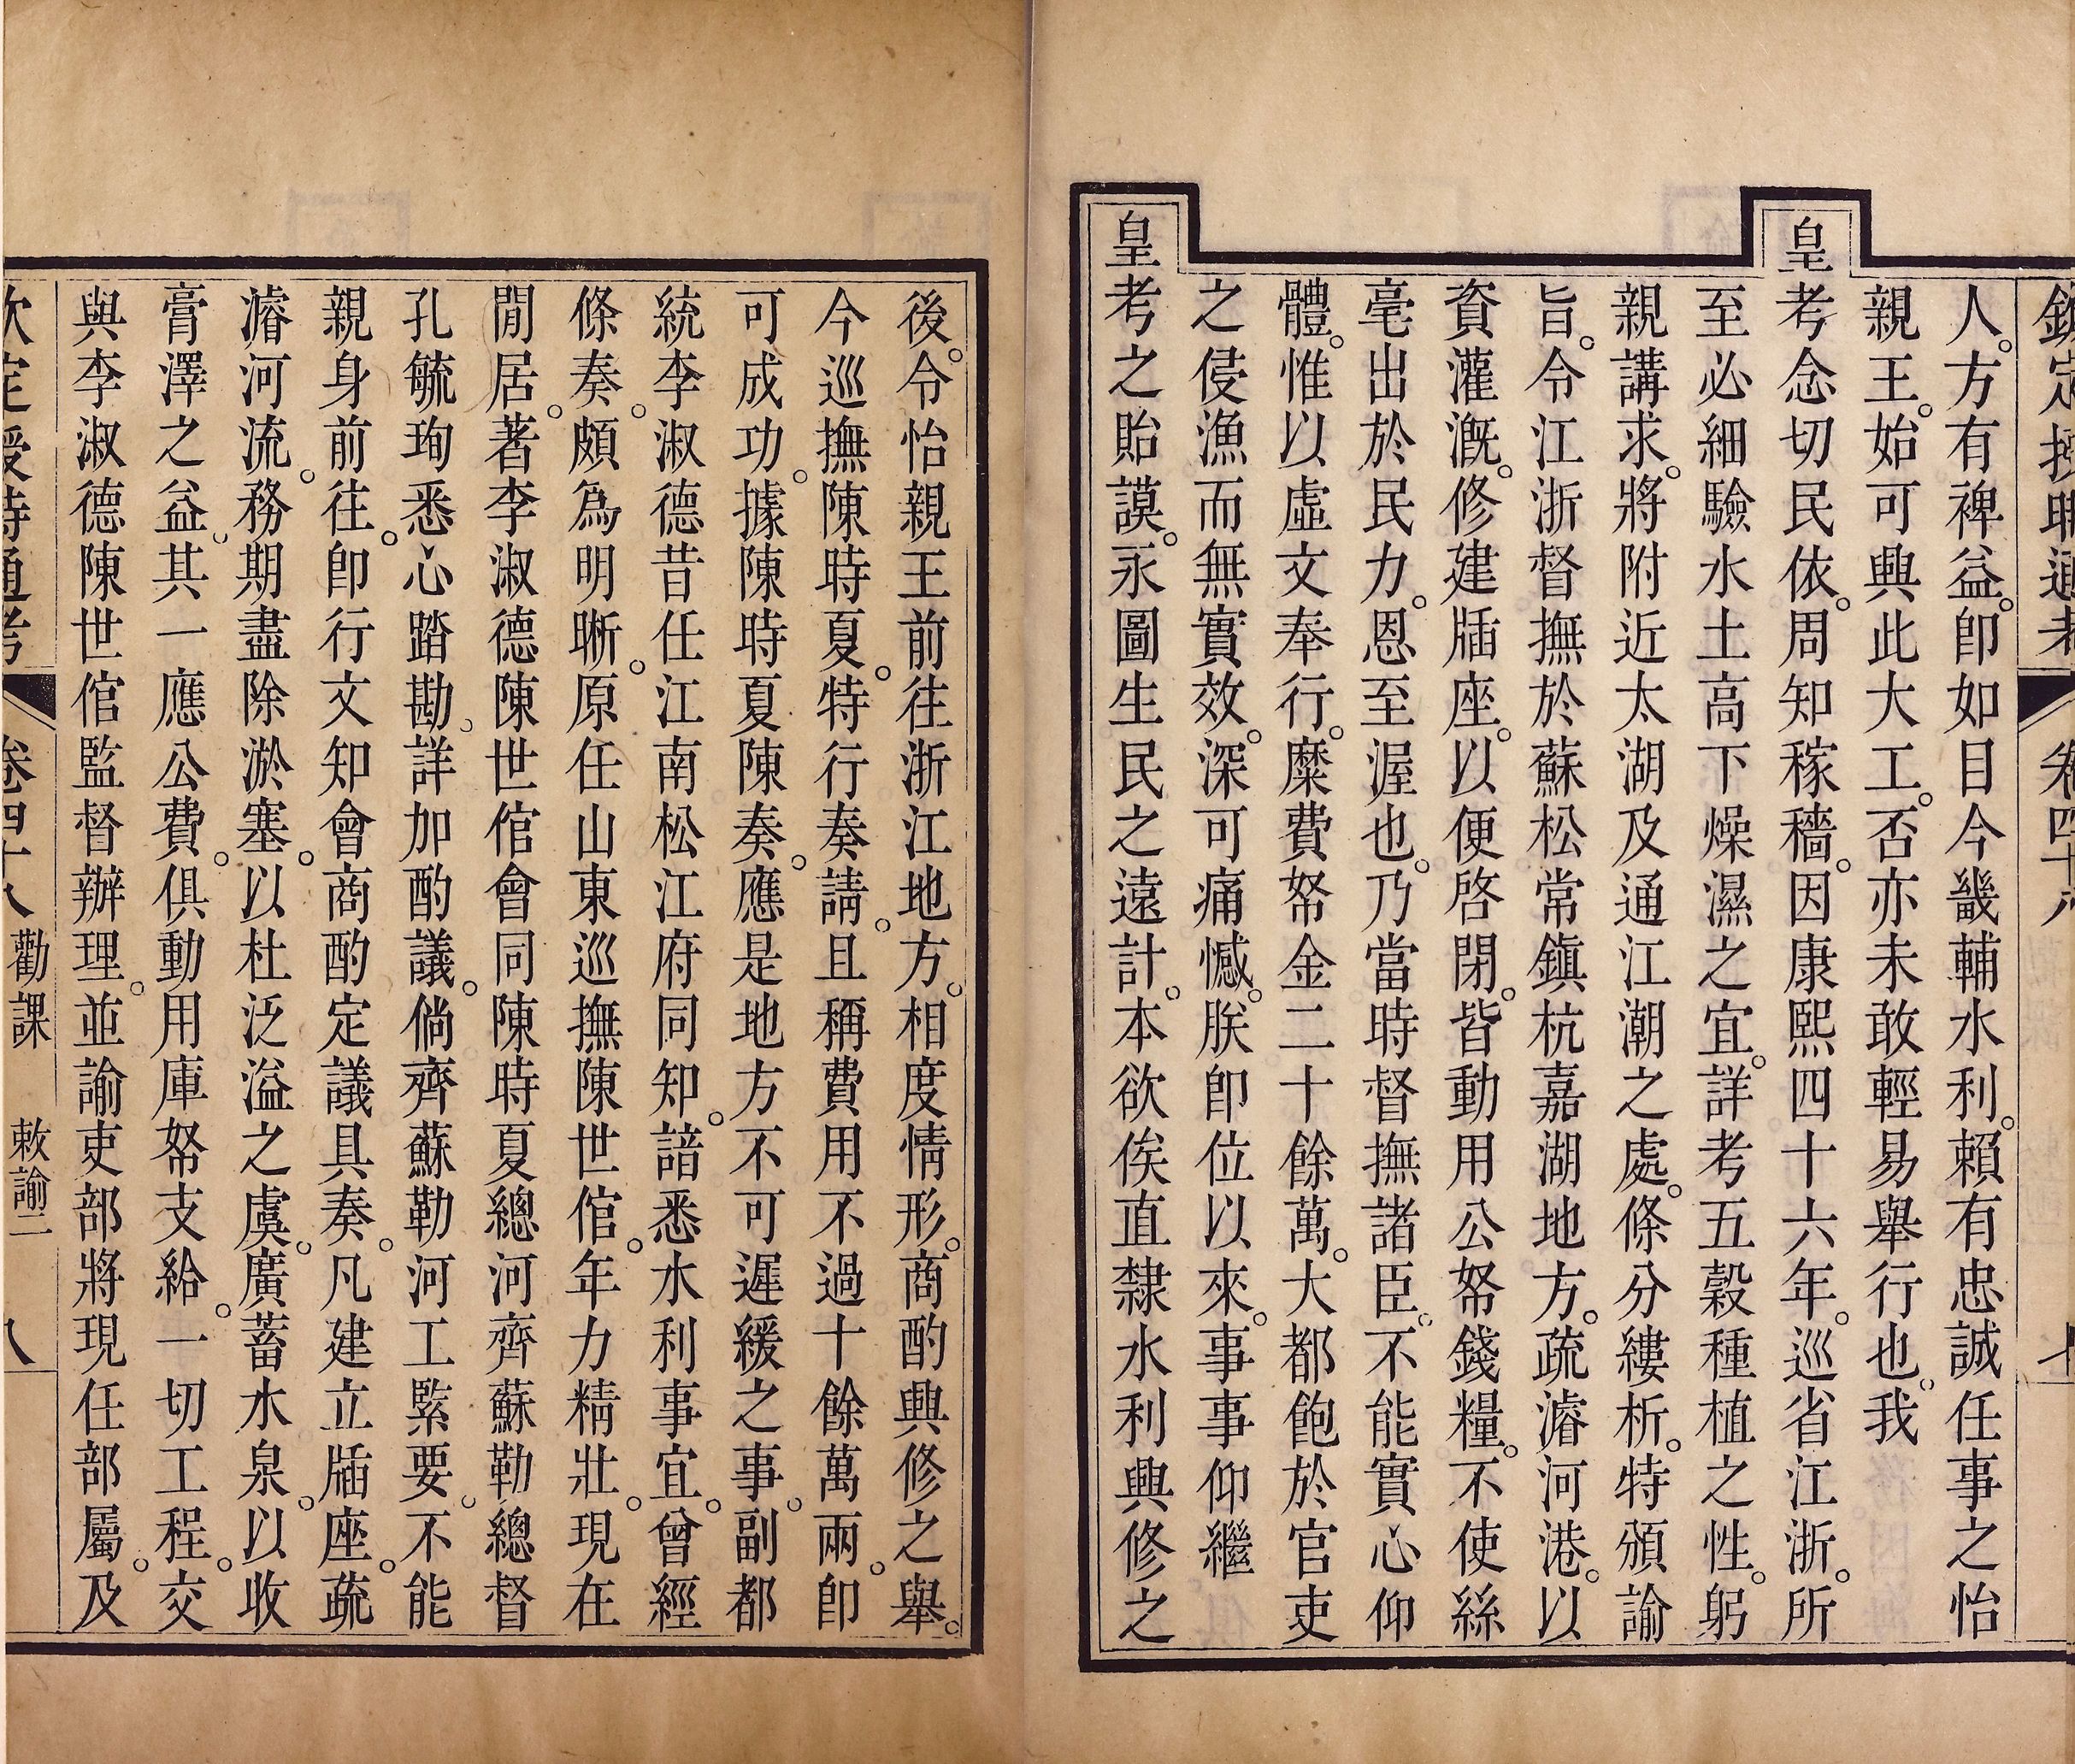 欽定授時通考 卷四十八 七
人。方有裨益。卽如目今畿輔水利。賴有忠誠任事之怡
親王。始可興此大工。否亦未敢輕易舉行也。我
皇考念切民依。周知稼穡。因康熙四十六年。巡省江浙。所
至必細驗水土高下燥濕之宜。詳考五穀種植之性。躬
親講求。將附近太湖及通江潮之處。條分縷析。特頒諭
旨。令江浙督撫於蘇松常鎮杭嘉湖地方。疏濬河港。以
資灌漑。修建牐座。以便啓閉。皆動用公帑錢糧。不使絲
毫出於民力。恩至渥也。乃當時督撫諸臣。不能實心仰
體。惟以虛文奉行。糜費帑金二十餘萬。大都飽於官吏
之侵漁而無實效。深可痛憾。朕卽位以來。事事仰繼
皇考之貽謨。永圖生民之遠計。本欲俟直隸水利興修之
後。令怡親王前往浙江地方。相度情形。商酌興修之舉。
今巡撫陳時夏。特行奏請。且稱費用不過十餘萬兩。卽
可成功。據陳時夏陳奏。應是地方不可遲緩之事。副都
統李淑德昔任江南松江府同知。諳悉水利事宜。曾經
條奏。頗爲明晰。原任山東巡撫陳世倌。年力精壯。現在
閒居。著李淑德陳世倌會同陳時夏總河齊蘇勒總督
孔毓珣悉心踏勘。詳加酌議。倘齊蘇勒河工緊要。不能
親身前往。卽行文知會商酌定議具奏。凡建立牐座。疏
濬河流。務期盡除淤塞。以杜泛溢之虞。廣蓄水泉。以收
膏澤之益。其一應公費。俱動用庫帑支給。一切工程。交
與李淑德陳世倌監督辦理。並諭吏部將現任部屬。及
欽定授時通考 卷四十八 勸課 敕諭二 八